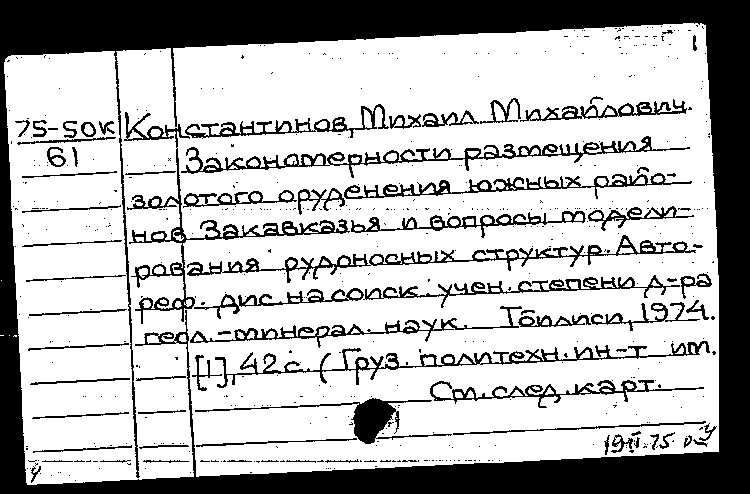 1
75-50к Константинов, Михаил Михайлович.
61 Закономерности размещения
золотого оруденения южных райо-
нов Закавказья и вопросы модели-
рования рудоносных структур. Авто-
реф. дис. на соиск. учен. степени д-ра
геол.-минерал. наук. Тбилиси, 1974.
[1], 42 с. (Груз. политехн. ин-т им.
См. след. карт.
75